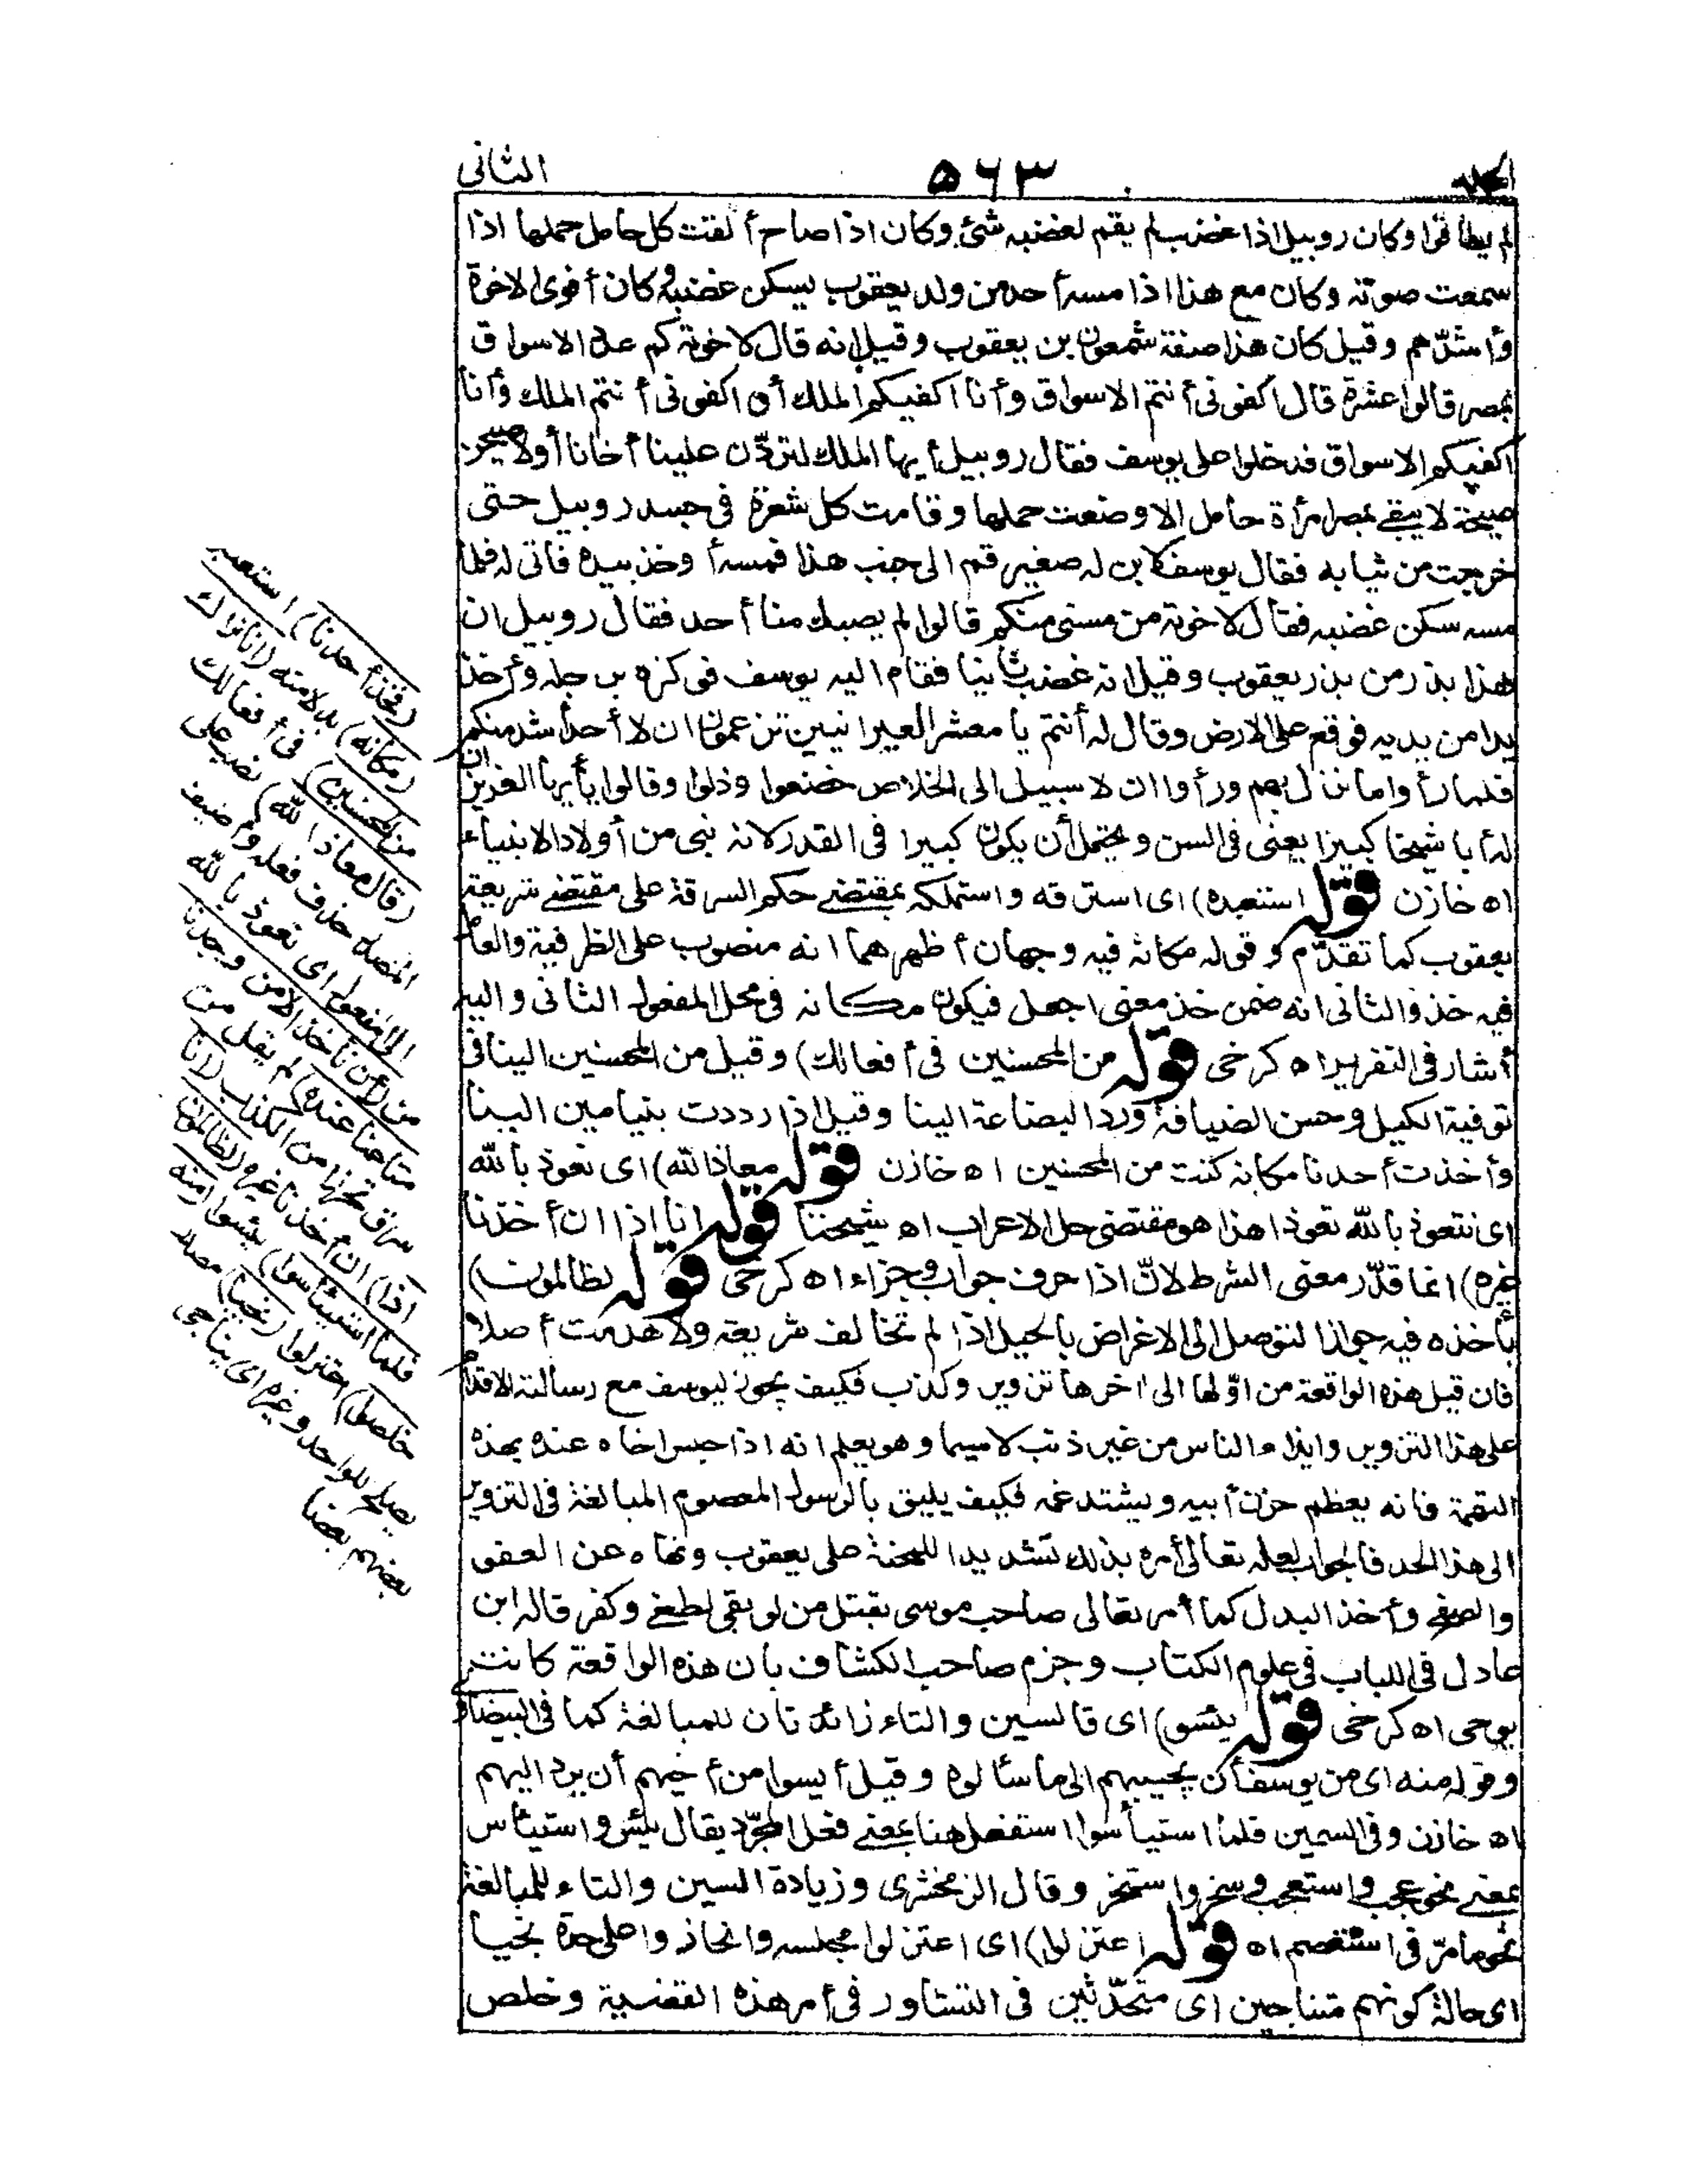 الجلد ٥٦٣ الثانى
لم يطاقوا وكان روبيل اذا غضب لم يقم لغضبه شئ وكان اذا صاح ألقت كل حامل حملها اذا
سمعت صوته وكان مع هذا اذا مسه أحد من ولد يعقوب يسكن غضبه وكان أقوى الاخوة
وأشدّهم وقيل كان هذا صفة شمعون بن يعقوب وقيل انه قال لاخوته كم عدد الاسواق
بمصر قالوا عشرة قال اكفونى أنتم الاسواق وأنا أكفيكم الملك أو اكفونى أنتم الملك وأنا
اكفيكم الاسواق فدخلوا على يوسف فقال روبيل أيها الملك لتردّن علينا أخانا أولا صيحن
صيحة لا يبقى بمصر امرأة حامل الا وضعت حملها وقامت كل شعرة فى جسد روبيل حتى
خرجت من ثيابه فقال يوسف لابن له صغير قم الى جنب هذا فمسه أ وخذ بيده فاتى له فلما
مسه سكن غضبه فقال لاخوته من مسنى منكم قالوا لم يصبك منا أحد فقال روبيل ان
هذا بذر من بذر يعقوب وقيل انه غضب ثانيا فقام اليه يوسف فوكزه برجله وأخذ
يدا من يديه فوقع على الارض وقال له أنتم يا معشر العبرانيين تزعمون ان لا أحد أشد منكم
فلما رأوا ما نزل بهم ورأوا ان لا سبيل الى الخلاص خضعوا وذلوا وقالوا يأيها العزيز ان
له أبا شيخا كبيرا يعنى فى السن ويحتمل أن يكون كبيرا فى القدر لانه نبى من أولاد الانبياء
اه خازن قوله استعبده) اى استرقه واستملكه بمقتضى حكم السرقة على مقتضى شريعة
يعقوب كما تقدّم وقوله مكانه فيه وجهان أظهرهما انه منصوب على الظرفية والعامل
فيه خذ والثانى انه ضمن خذ معنى اجعل فيكون مكانه فى محل المفعول الثانى واليه
أشار فى التقرير اه كرخى قوله من المحسنين فى أفعالك) وقيل من المحسنين الينا فى
توفية الكيل وحسن الضيافة ورد البضاعة الينا وقيل اذا رددت بنيامين الينا
وأخذت أحدنا مكانه كنت من المحسنين اه خازن قوله معاذ الله) اى نعوذ بالله
اى نتعوذ بالله تعوذا هذا هو مقتضى حل الاعراب اه شيخنا قوله انا اذا ان أخذنا
غيره) انما قدّر معنى الشرط لانّ اذا حرف جواب وجزاء اه كرخى قوله لظالمون)
بأخذه فيه جواز التوصل الى الاغراض بالحيل اذا لم تخالف شريعة ولا هدمت أصلا
فان قيل هذه الواقعة من اوّلها الى اخرها تزوير وكذب فكيف يجوز ليوسف مع رسالته الاقدام
على هذا التزوير وايذاء الناس من غير ذنب لاسيما وهو يعلم انه اذا حبس اخاه عنده بهذه
التهمة فانه يعظم حزن أبيه ويشتد غمه فكيف يليق بالرسول المعصوم المبالغة فى التزوير
الى هذا الحد فالجواب لعله تعالى أمره بذلك تشديدا للمحنة على يعقوب ونهاه عن العفو
والصفح وأخذ البدل كما أمر تعالى صاحب موسى بقتل من لو بقى لطغى وكفر قاله ابن
عادل فى اللباب فى علوم الكتاب وجزم صاحب الكشاف بان هذه الواقعة كانت
بوحى اه كرخى قوله يئسو) اى فالسين والتاء زائدتان للمبالغة كما فى البيضاوى
وقوله منه اى من يوسف أن يجيبهم الى ما سألوه وقيل أيسوا من أخيهم أن يرد اليهم
اه خازن وفى السمين فلما استيأسوا استفعل هنا بمعنى فعل المجرّد يقال يئس واستيئاس
بمعنى نحو عجب واستعجب وسخر واستسخر وقال الزمخشرى وزيادة السين والتاء للمبالغة
نحو ما مرّ فى استعصم اه قوله اعتزلوا) اى اعتزلوا مجلسه وانحازوا على حدة نجيا
اى حالة كونهم متناجين اى متحدّثين فى التشاور فى أمر هذه القضية وخلص
(فخذ أحدنا) استعبد
(مكانه) بدلا منه (انا نراك
من المحسنين) فى أفعالك
(قال معاذ الله) نصب على
المصدر حذف فعله وأضيف
الى المفعول اى نعوذ بالله
من (أن نأخذ الا من وجدنا
متاعنا عنده) لم يقل من
سرق تحرزا من الكذب (انا
اذا) ان أخذنا غيره (لظالمون
فلما استيئاسوا) يئسوا (منه
خلصوا) اعتزلوا (نجيا) مصدر
يصلح للواحد وغيره اى يناجى
بعضهم بعضا